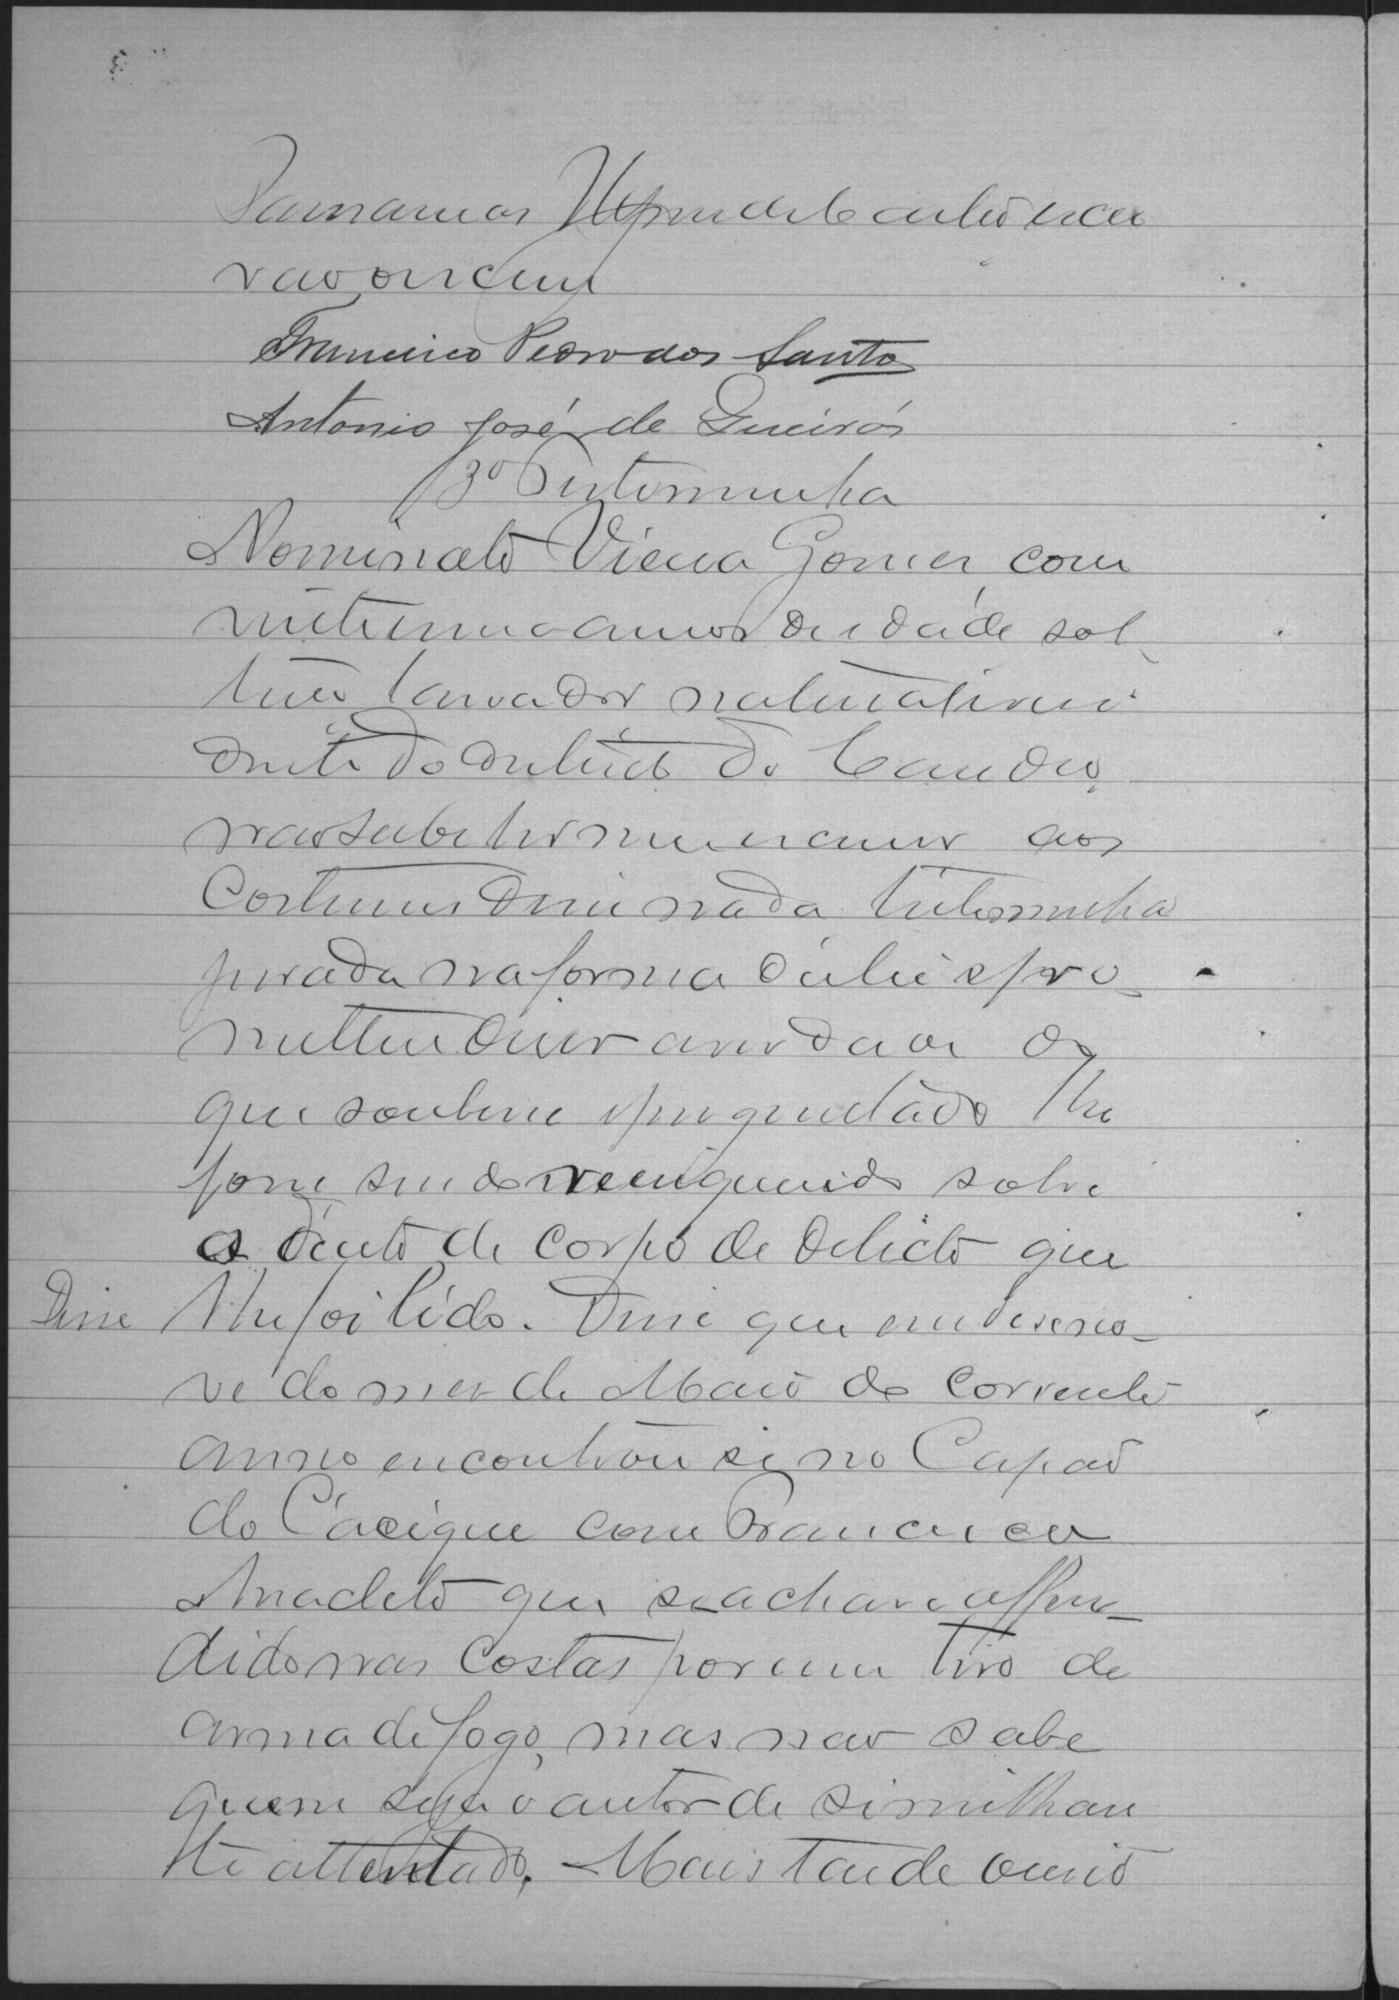 vão
Francisco Pedro dos Santos
Antonio José de Queirós
3ª Testemunha
Nominato Vieira Gomes, com
vinte e um annos de idade sol-
teiro lavrador natural e resi
dente do destricto do
não sabe ler nem escrever aos
costumes disse nada testemunha
jurada na forma da lei e pro-
metteu dizer a verdade do
que soubesse e perguntado lhe
fosse sendo inquirido sobre
o auto de corpo de delicto que
Disse lhe foi lido. Disse que em deseno-
ve do mes de Maio do corrente
anno encontrou se no Capão
do Cacique com Francisco
Anacleto que se achava offen-
dido nas costas por um tiro de
arma de fogo, mas não sabe
quem seja o autor de similhan
te attentado. Mais tarde ouviu